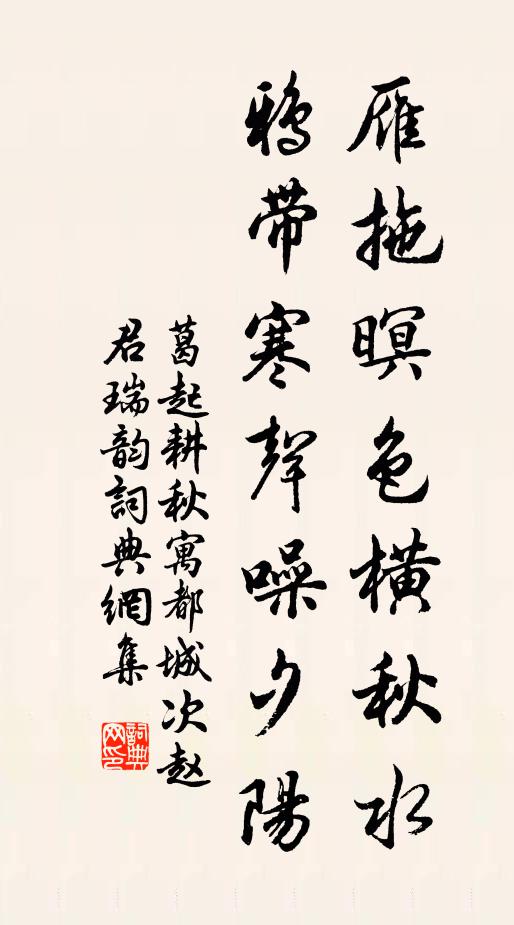 雁拖暝色橫秋水
鴉帶寒聲噪夕陽
葛起耕秋寓都城次赵
君瑞韵詞典網集
詞典
网印